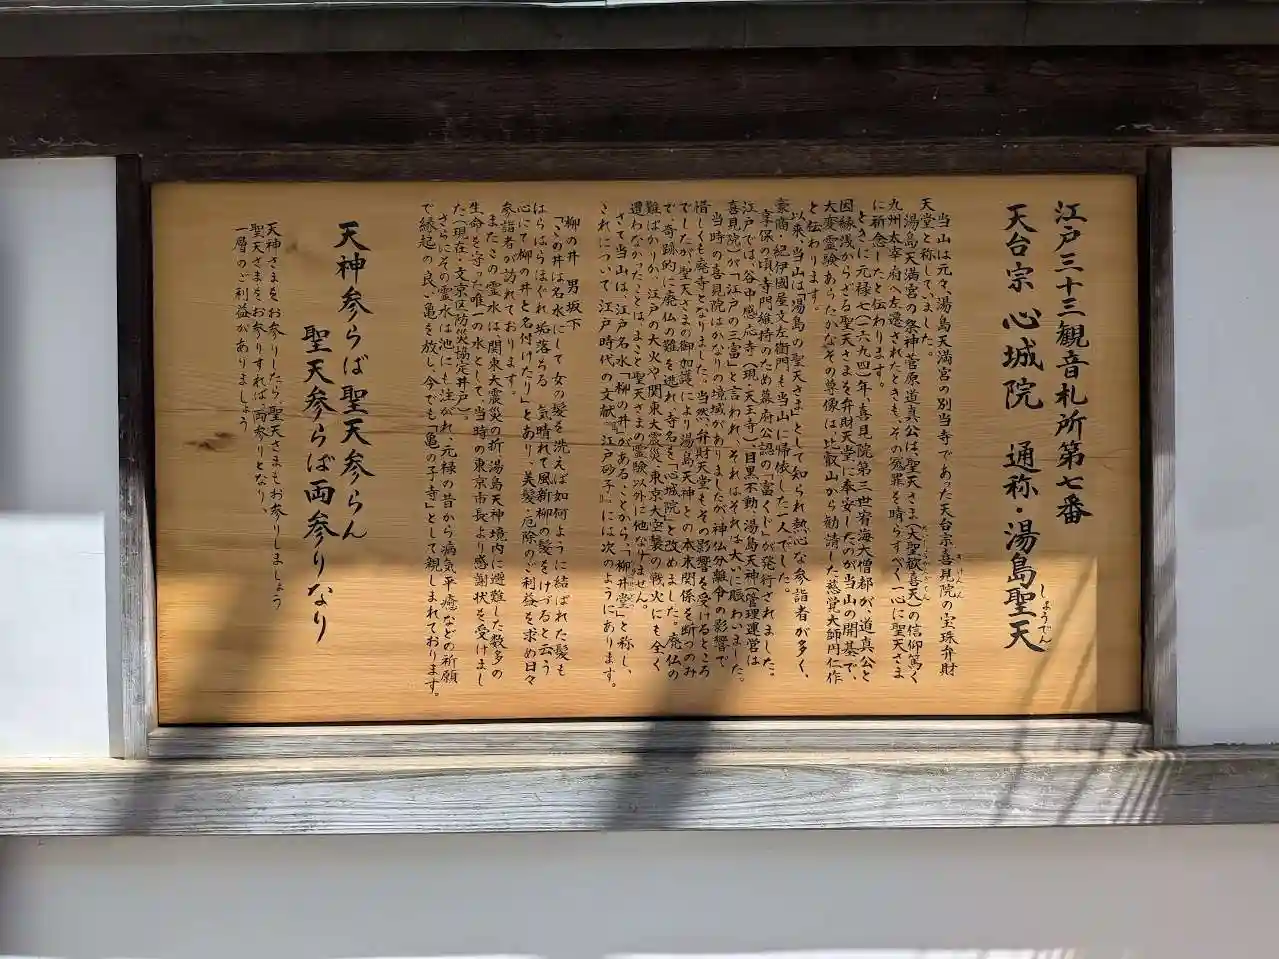 江戸三十三観音札所第七番
天台宗 心城院 通称・湯島聖天
しょうでん
当山は元々、湯島天満宮の別当寺であった天台宗喜見院の宝珠弁財
きけん
天堂と称していました。
湯島天満宮の祭神菅原道真公は、聖天さま(大聖歓喜天)の信仰篤く
九州太宰府へ左遷されたときも、その冤罪を晴らすべく一心に聖天さま
に祈念したと伝わります。
ときに元禄七(一六九四)年、喜見院第三世宥海大僧都が、道真公と
因縁浅からざる聖天さまを弁財天堂に奉安したのが当山の開基で、
大変霊験あらたかなその尊像は比叡山から勧請した慈覚大師円仁作
と伝わります。
以来、当山は「湯島の聖天さま」として知られ熱心な参詣者が多く、
豪商・紀伊國屋文左衛門も当山に帰依した一人でした。
享保の頃寺門維持のため幕府公認の「富くじ」が発行されました。
江戸では、谷中感応寺(現・天王寺)目黒不動・湯島天神(管理運営は
喜見院)が「江戸の三富」と言われ、それはそれは大いに賑わいました。
当時の喜見院はかなりの境域がありましたが神仏分離令の影響で
惜しくも廃寺となりました。当然、弁財天堂もその影響を受けるところ
でしたが、聖天さまの御加護により湯島天神との本末関係を断つのみ
で、奇跡的に廃仏の難を逃れ、寺名を「心城院」と改めました。廃仏の
難ばかりか、江戸の大火や関東大震災、東京大空襲の戦火にも全く
遭わなかったことは、まこと聖天さまの霊験以外に他なりません。
さて当山は、江戸名水「柳の井」があることから、「柳井堂」と称し、
それについて江戸時代の文献『江戸砂子』には次のようにあります。
柳の井 男坂下
「この井は名水にして女の髪を洗えば如何ように結ばれた髪も
はらはらほぐれ、垢落ちる 気晴れて風新柳の髪をけづると云う
心にて柳の井と名付けたり」とあり、美髪・厄除のご利益を求め日々
参詣者が訪れております。
またこの霊水は関東大震災の折、湯島天神境内に避難した数多の
生命を守った唯一の水として、当時の東京市長より感謝状を受けまし
た(現在・文京区防災協定井戸)。
さらにその霊水は池にも注がれ、元禄の昔から病気平癒などの祈願
で縁起の良い亀を放し、今でも「亀の子寺」として親しまれております。
天神参らば聖天参らん
聖天参らば両参りなり
天神さまをお参りしたら、聖天さまもお参りしましょう
聖天さまをお参りすれば両参りとなり、
一層のご利益がありましょう